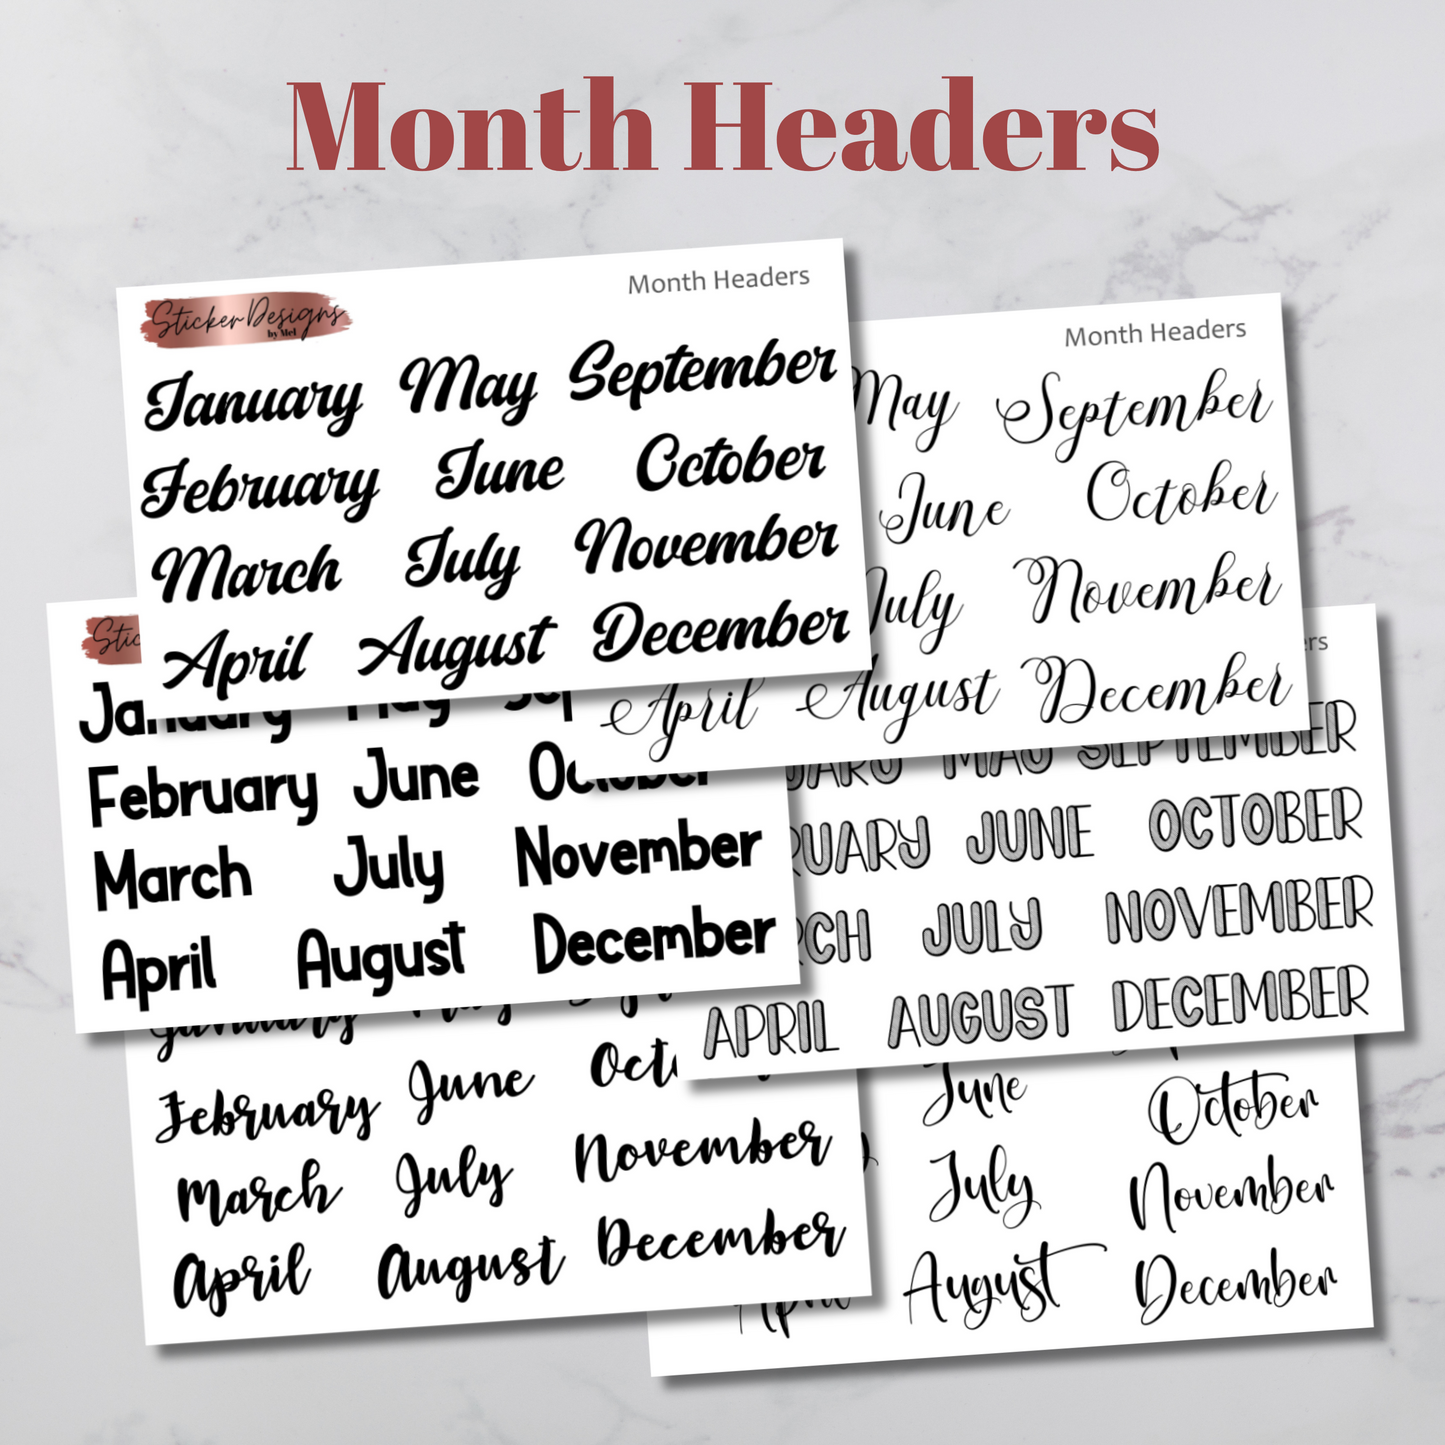 Month Headers
Sticker Designs
by Mel
Month Headers
January May September
February June October
March July November
April August December
Month Headers
May September
June October
July November
April August December
January May
February June October
March July November
April August December
MAY SEPTEMBER
JUNE OCTOBER
JULY NOVEMBER
APRIL AUGUST DECEMBER
January May
February June
March July November
April August December
June October
July November
April August December